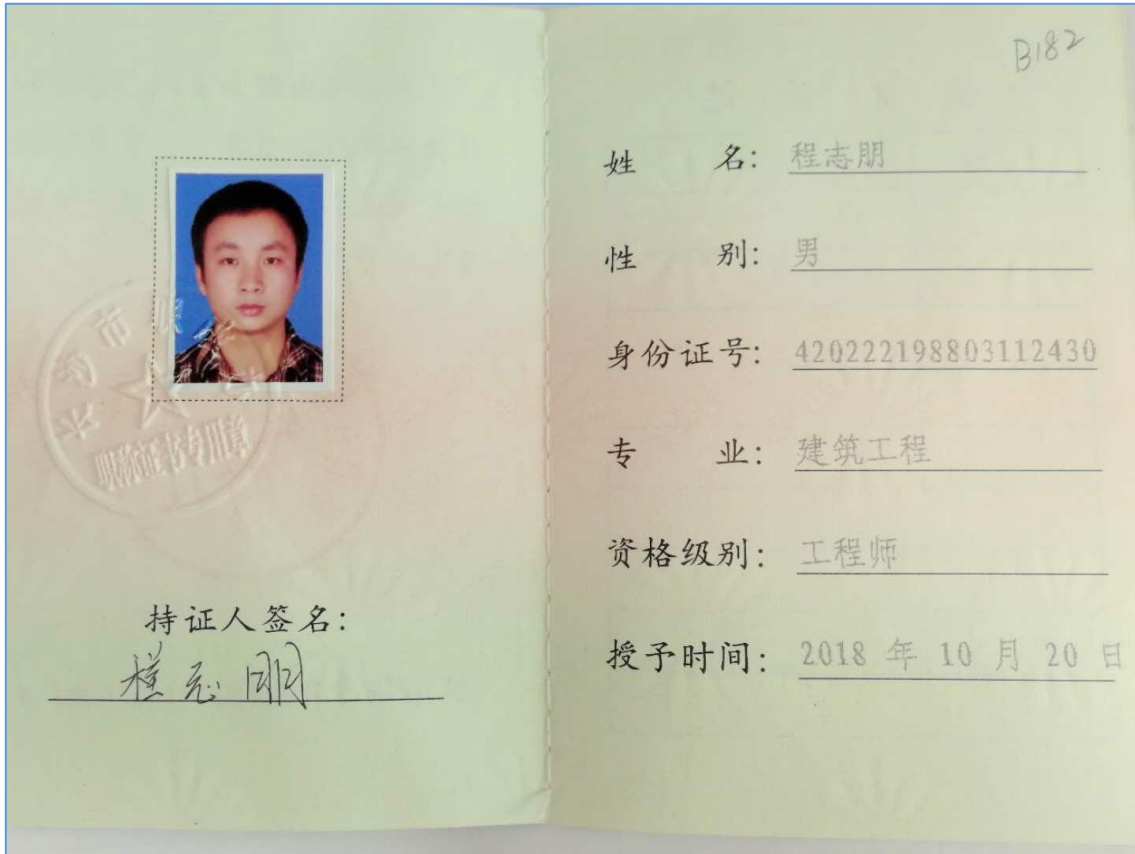 长沙市职
职称证书专用章
持证人签名：
程志朋
B182
姓 名：程志朋
性 别：男
身份证号：420222198803112430
专 业：建筑工程
资格级别：工程师
授予时间：2018 年 10 月 20 日